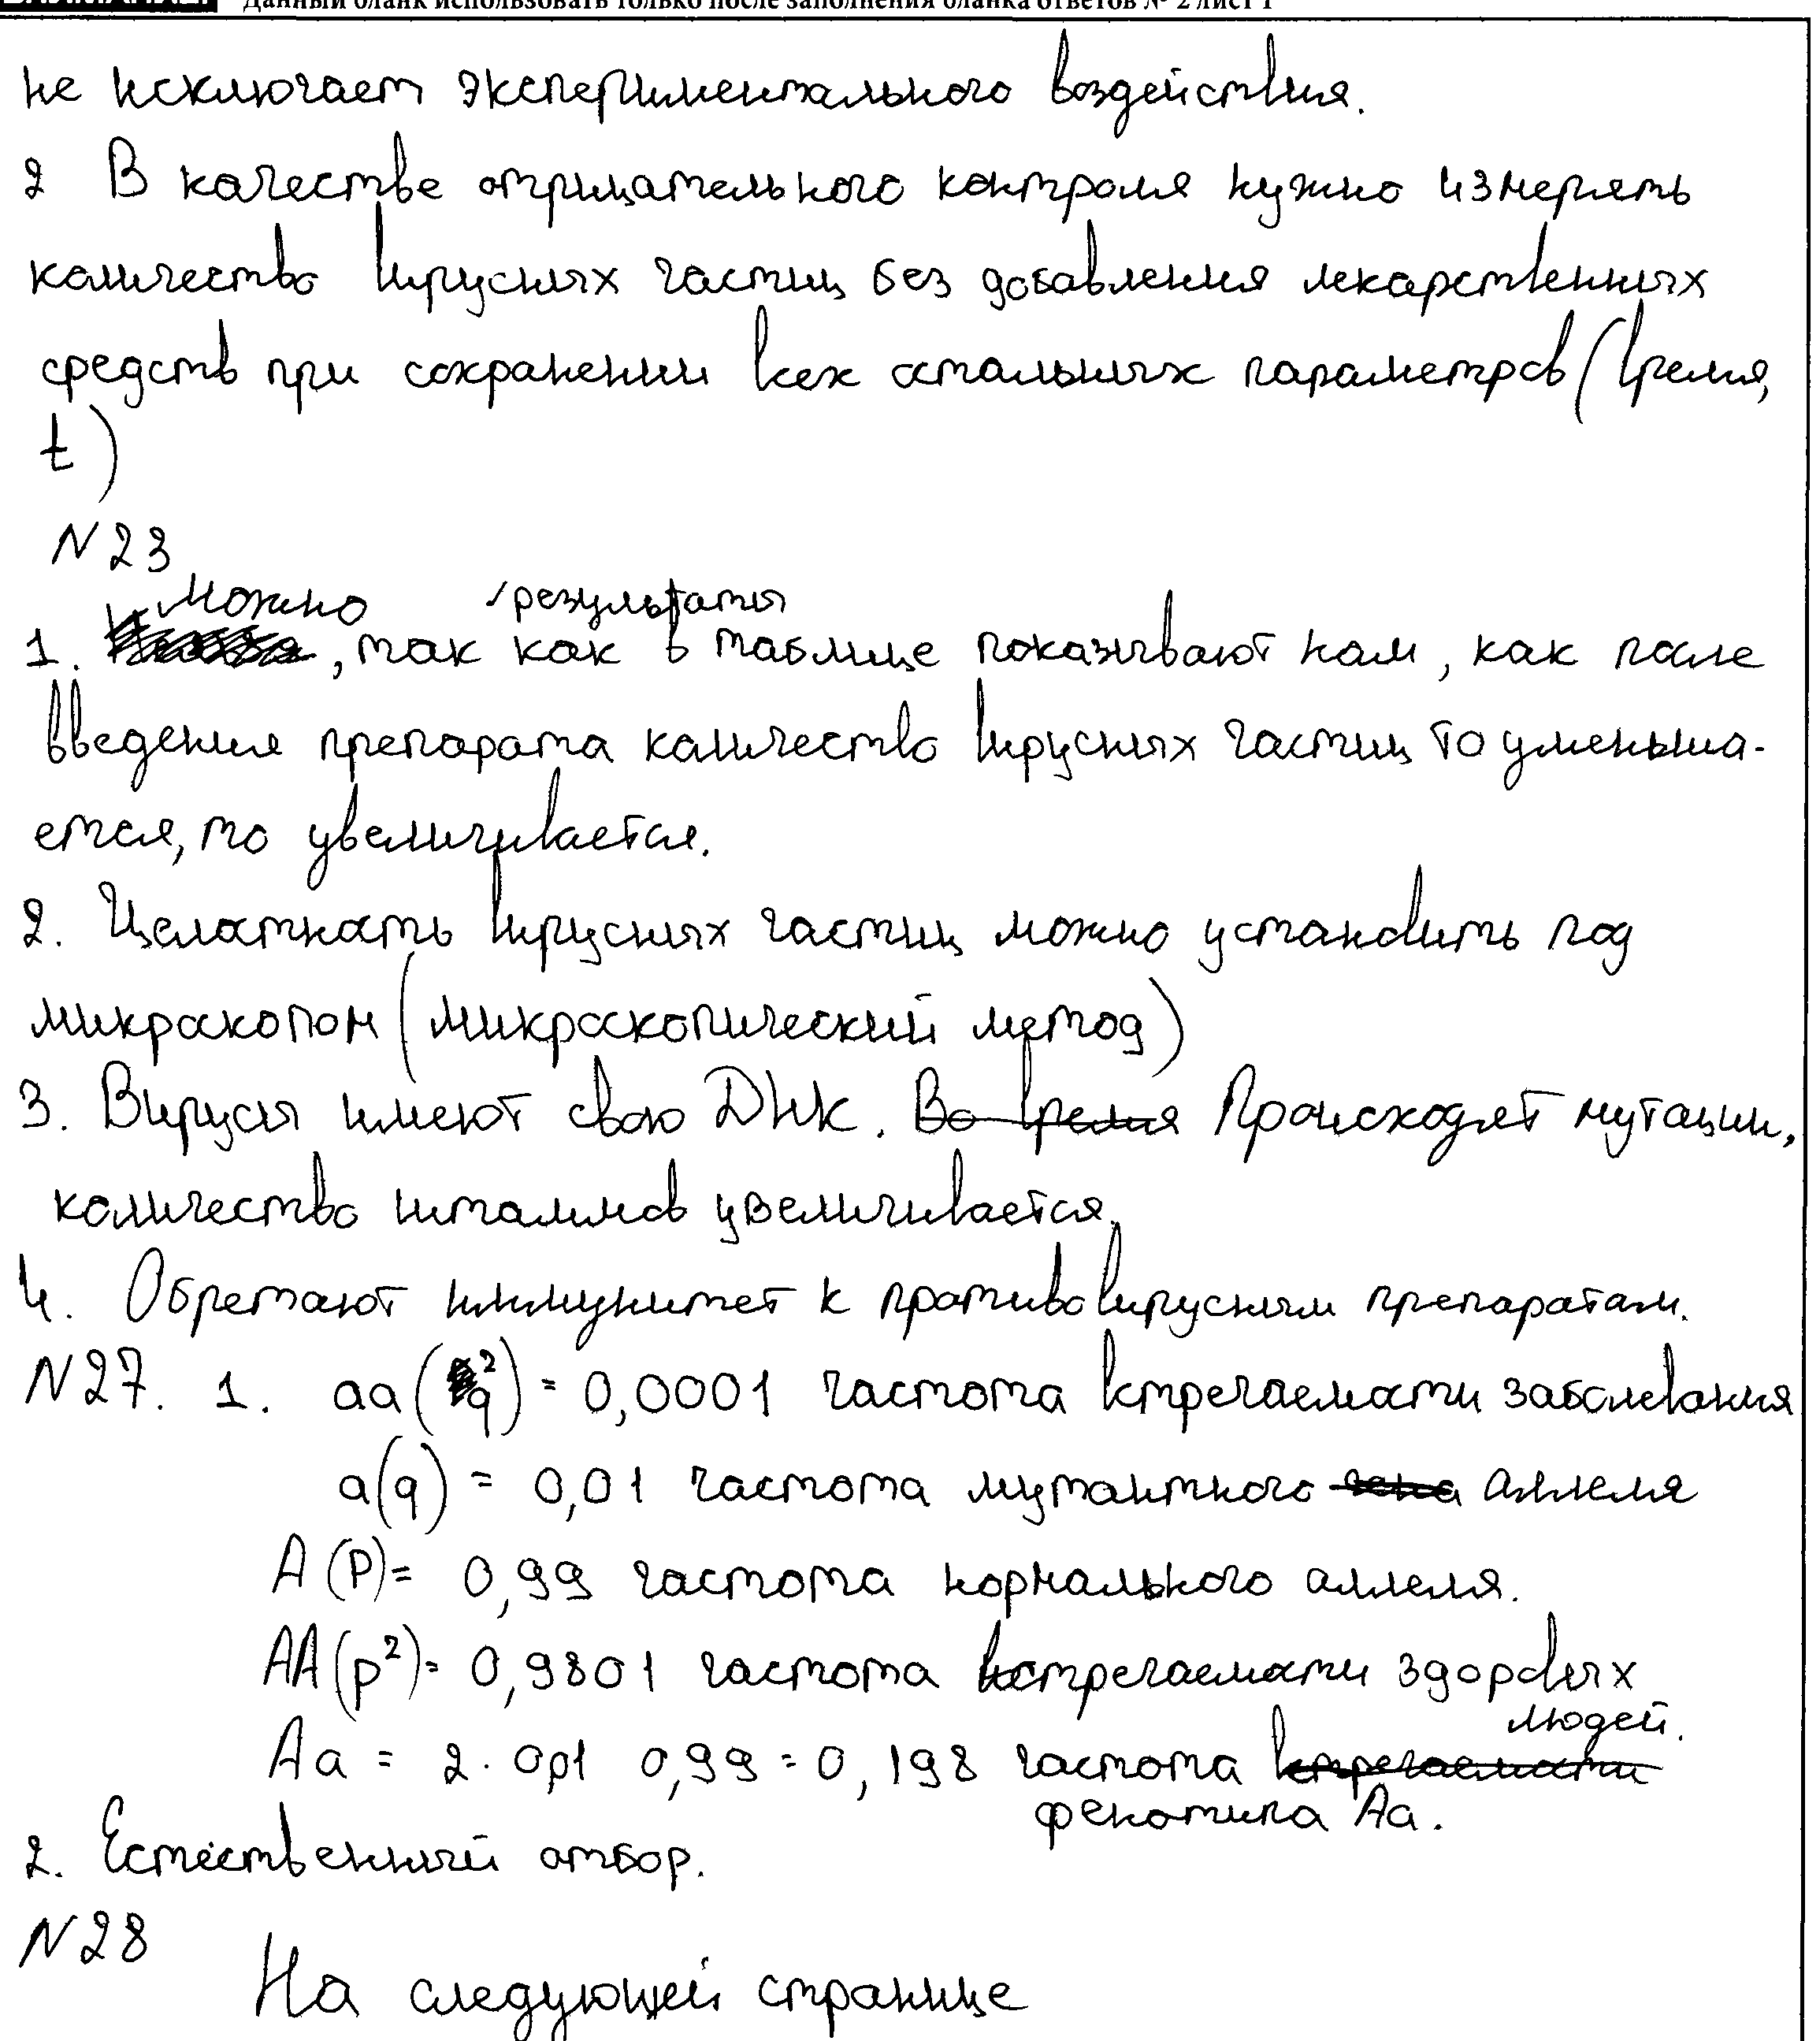 Данный бланк использовать только после заполнения бланка ответов № 2 лист 1
не исключает экспериментального воздействия.
2 В качестве отрицательного контроля нужно измерять
количество вирусных частиц без добавления лекарственных
средств при сохранении всех остальных параметров (время,
t)
N23
можно результаты
1. , так как в таблице показывают нам, как после
введения препарата количество вирусных частиц то уменьша-
ется, то увеличивается.
2. Целостность вирусных частиц можно установить под
микроскопом (микроскопический метод)
3. Вирусы имеют свою ДНК. Во время Происходят мутации,
количество штаммов увеличивается.
4. Обретают иммунитет к противовирусным препаратам.
N27. 1. aa(q²) = 0,0001 частота встречаемости заболевания
a(q) = 0,01 частота мутантного гена аллеля
A(P)= 0,99 частота нормального аллеля.
AA(p²)= 0,9801 частота встречаемости здоровых
людей.
Aa = 2. 0,01 0,99 = 0,198 частота встречаемости
фенотипа Aa.
2. Естественный отбор.
N28
На следующей странице